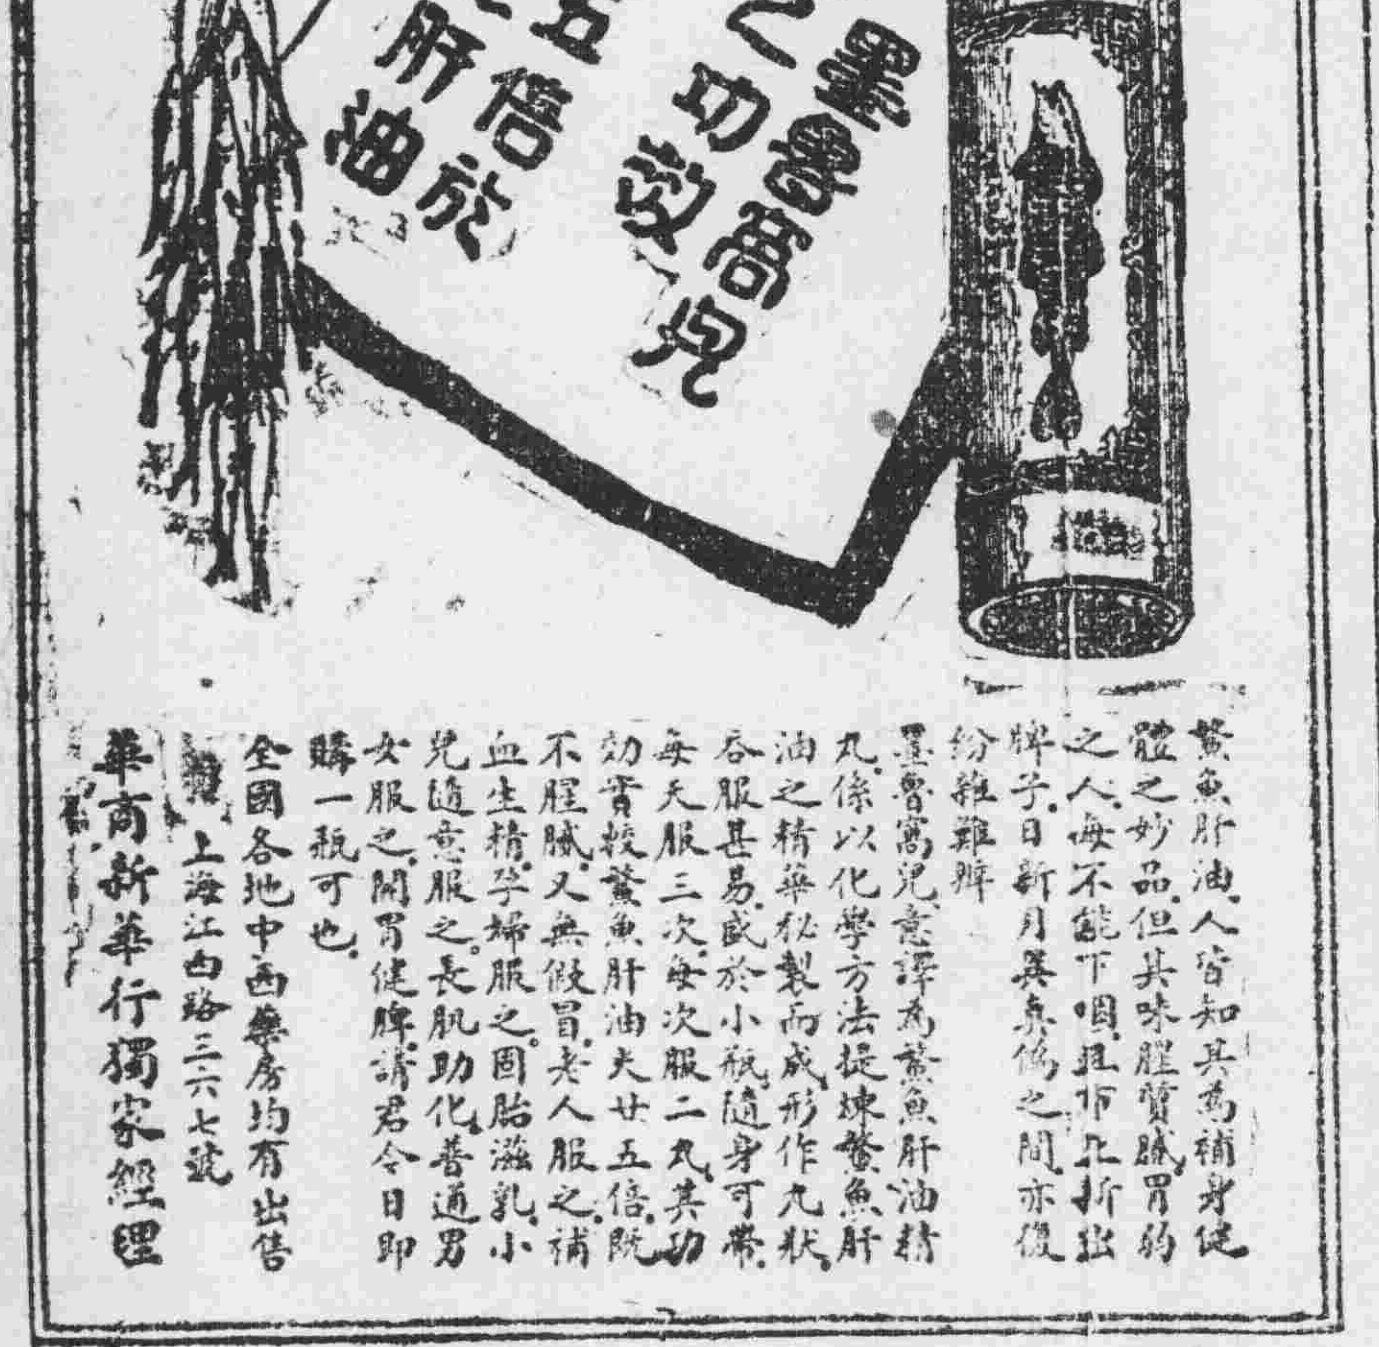 墨魯窩兒
之功效
五倍於
肝油
鰵魚肝油、人皆知其為補身健
體之妙品、但其味腥質膩、胃弱
之人、每不能下咽、且市上折出
牌子、日新月異、真偽之間、亦復
紛雜難辨
墨魯窩兒、意譯為鰵魚肝油精
丸、係以化學方法提煉鰵魚肝
油之精華秘製而成、形作丸狀、
吞服甚易、盛於小瓶、隨身可帶、
每天服三次、每次服二丸、其功
効實較鰵魚肝油大廿五倍、既
不腥膩、又無假冒、老人服之、補
血生精、孕婦服之、固胎滋乳、小
兒隨意服之、長肌助化、普通男
女服之、開胃健脾、請君今日即
購一瓶可也、
全國各地中西藥房均有出售
上海江西路三六七號
華商新華行獨家經理